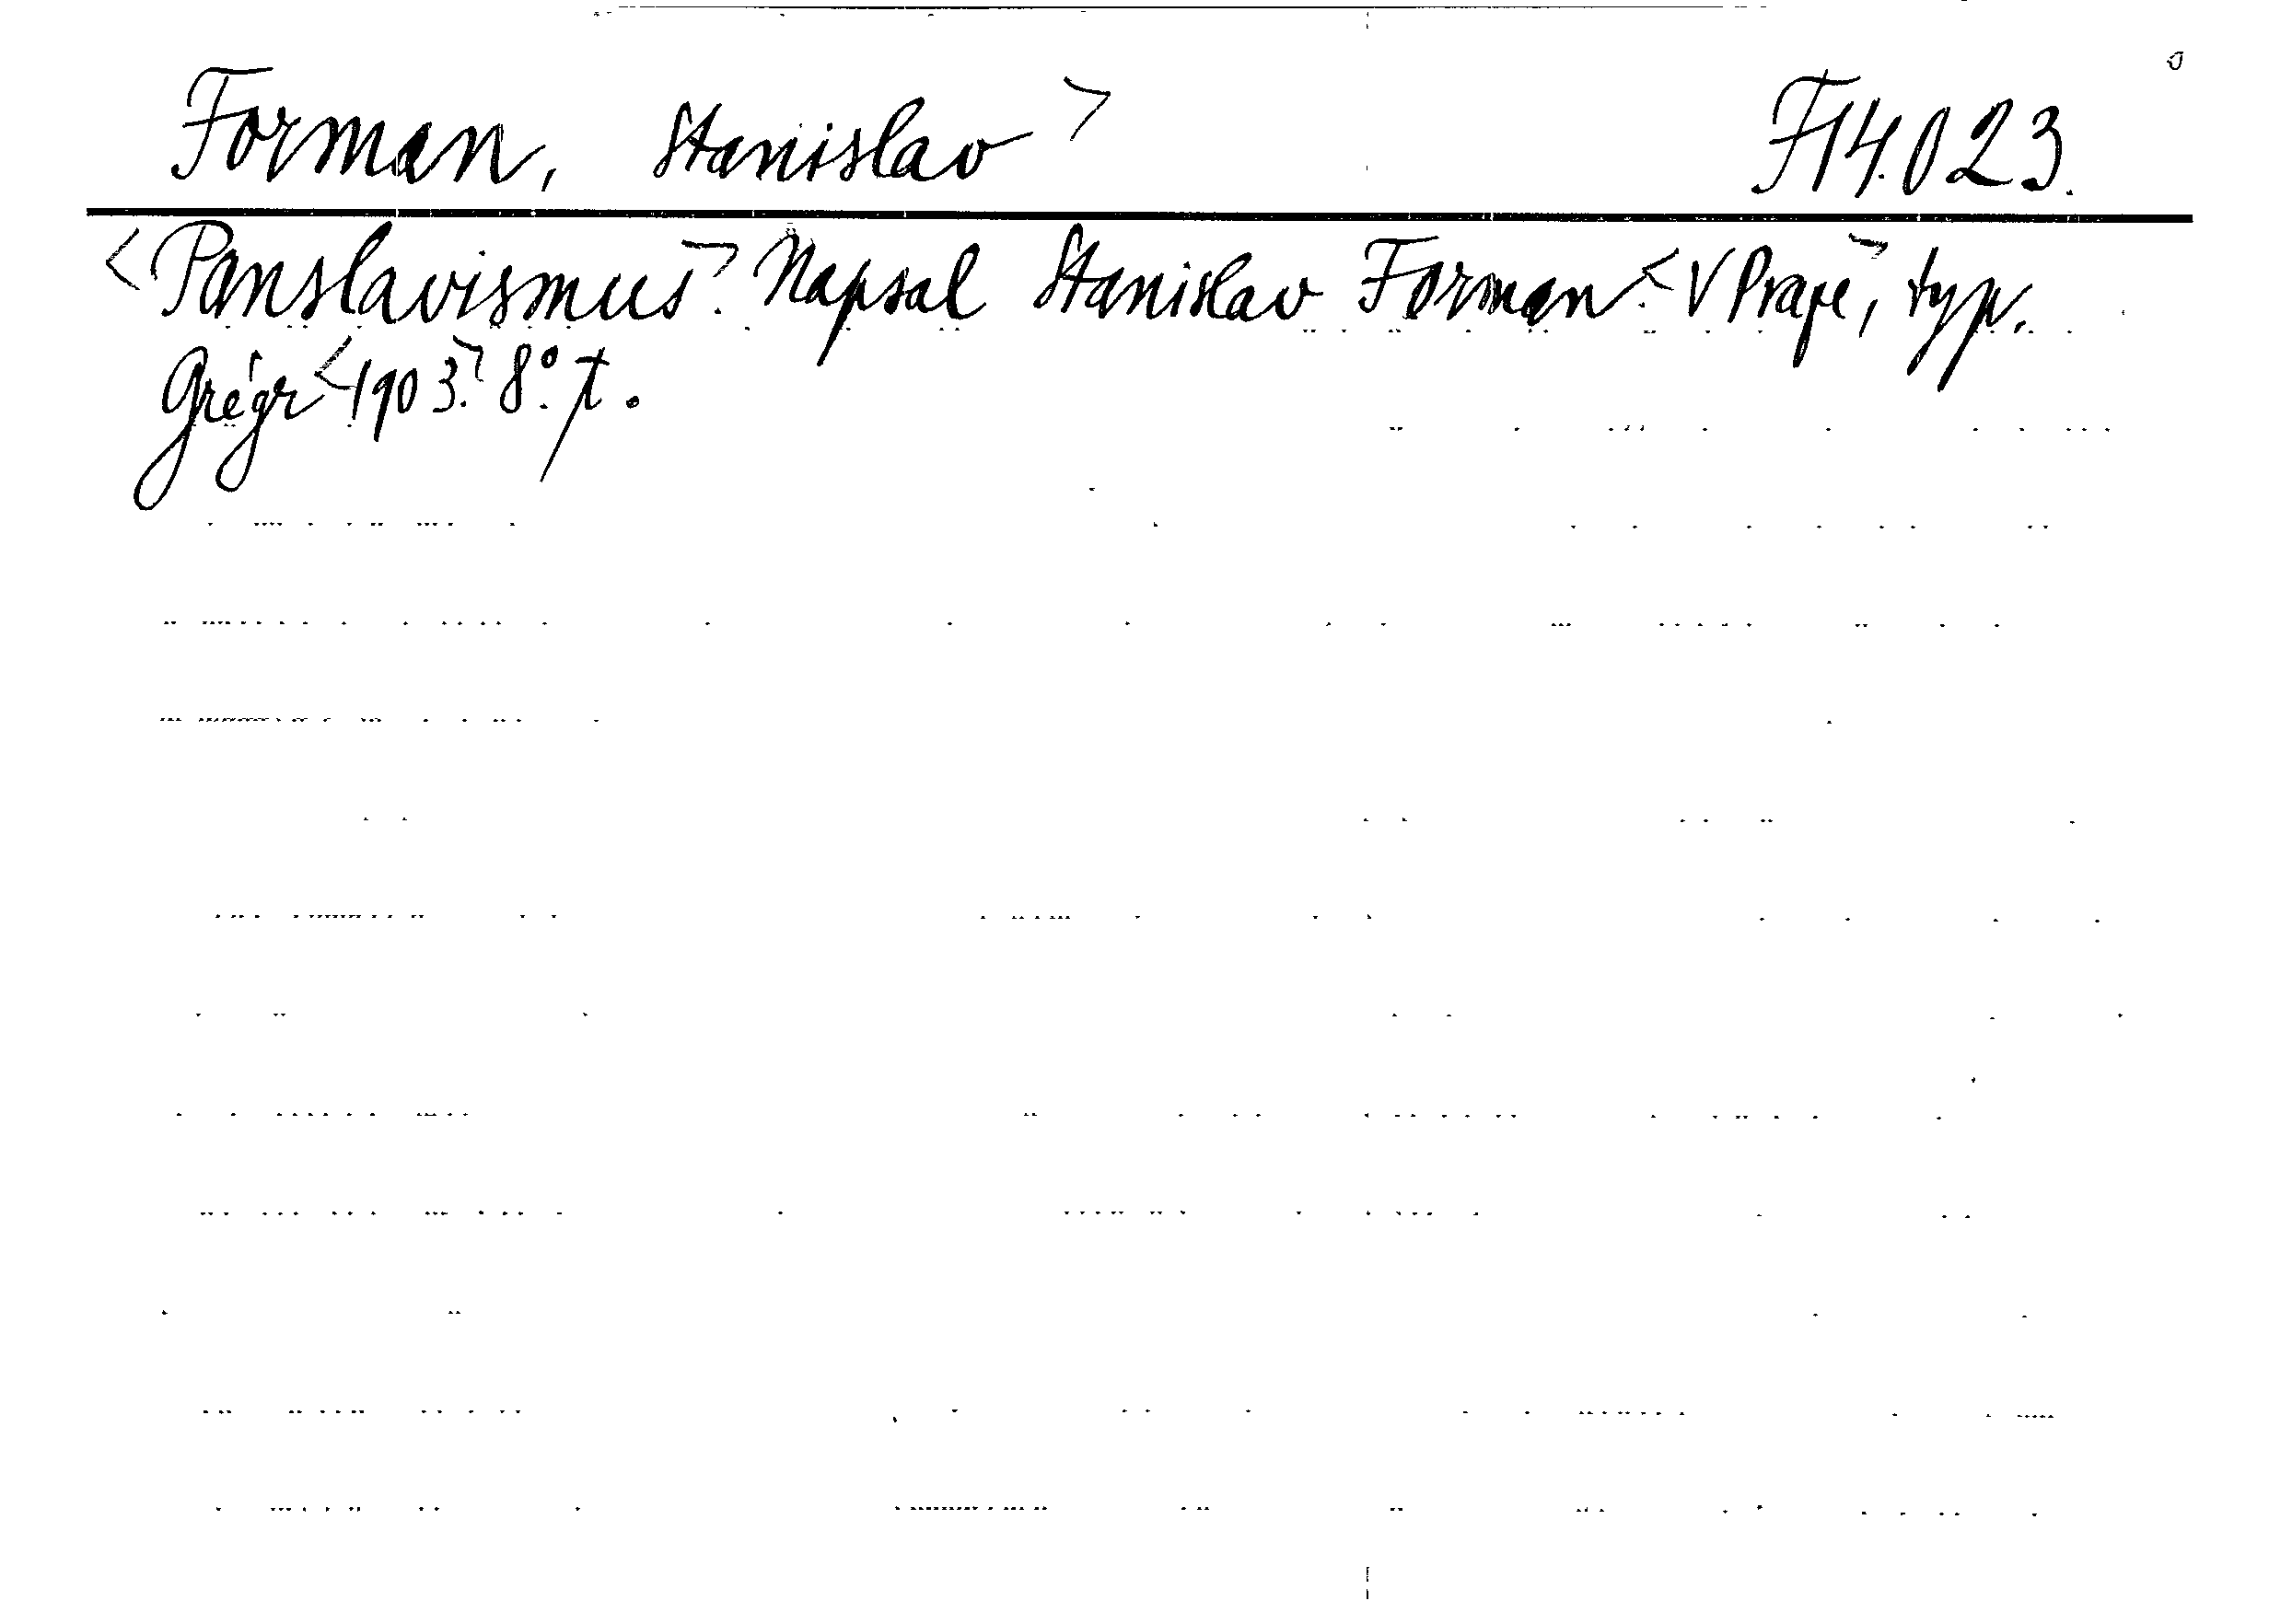 Forman, Stanislav> F14.023.
<Panslavismus>. Napsal Stanislav Forman.< V Praze>, typ.
Grégr <1903.> 8°. t.